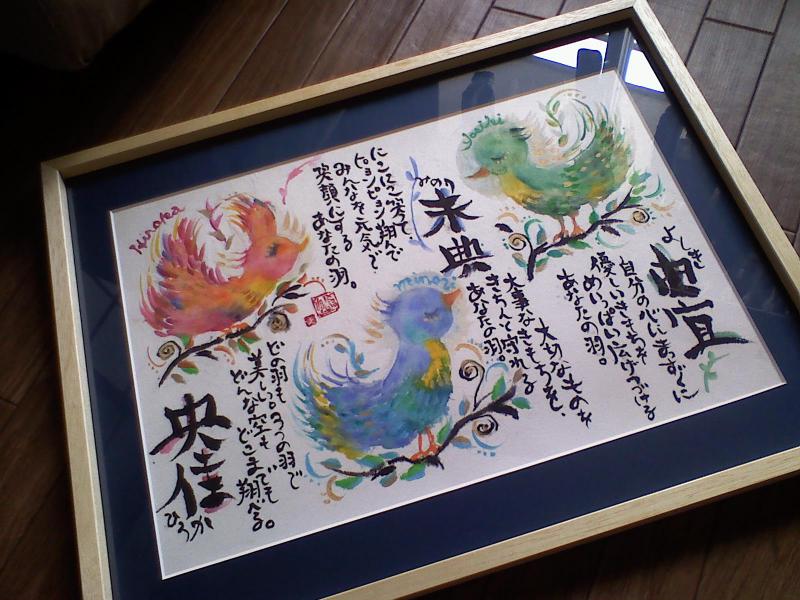 よしき
由宜
自分の心にまっすぐに
優しいきもちを
めいっぱい広げつづける
あなたの羽。
みのり
未典
大切なものを
大事なきもちを、
きちんと守れる
あなたの羽。
にこにこ笑って
ピョンピョン翔んで
みんなを元気で
笑顔にする
あなたの羽。
央佳
ひろか
どの羽も。3つの羽で
美しい。どこまででも
どんな空も翔べる。
Yoshiki
minori
Hiroka